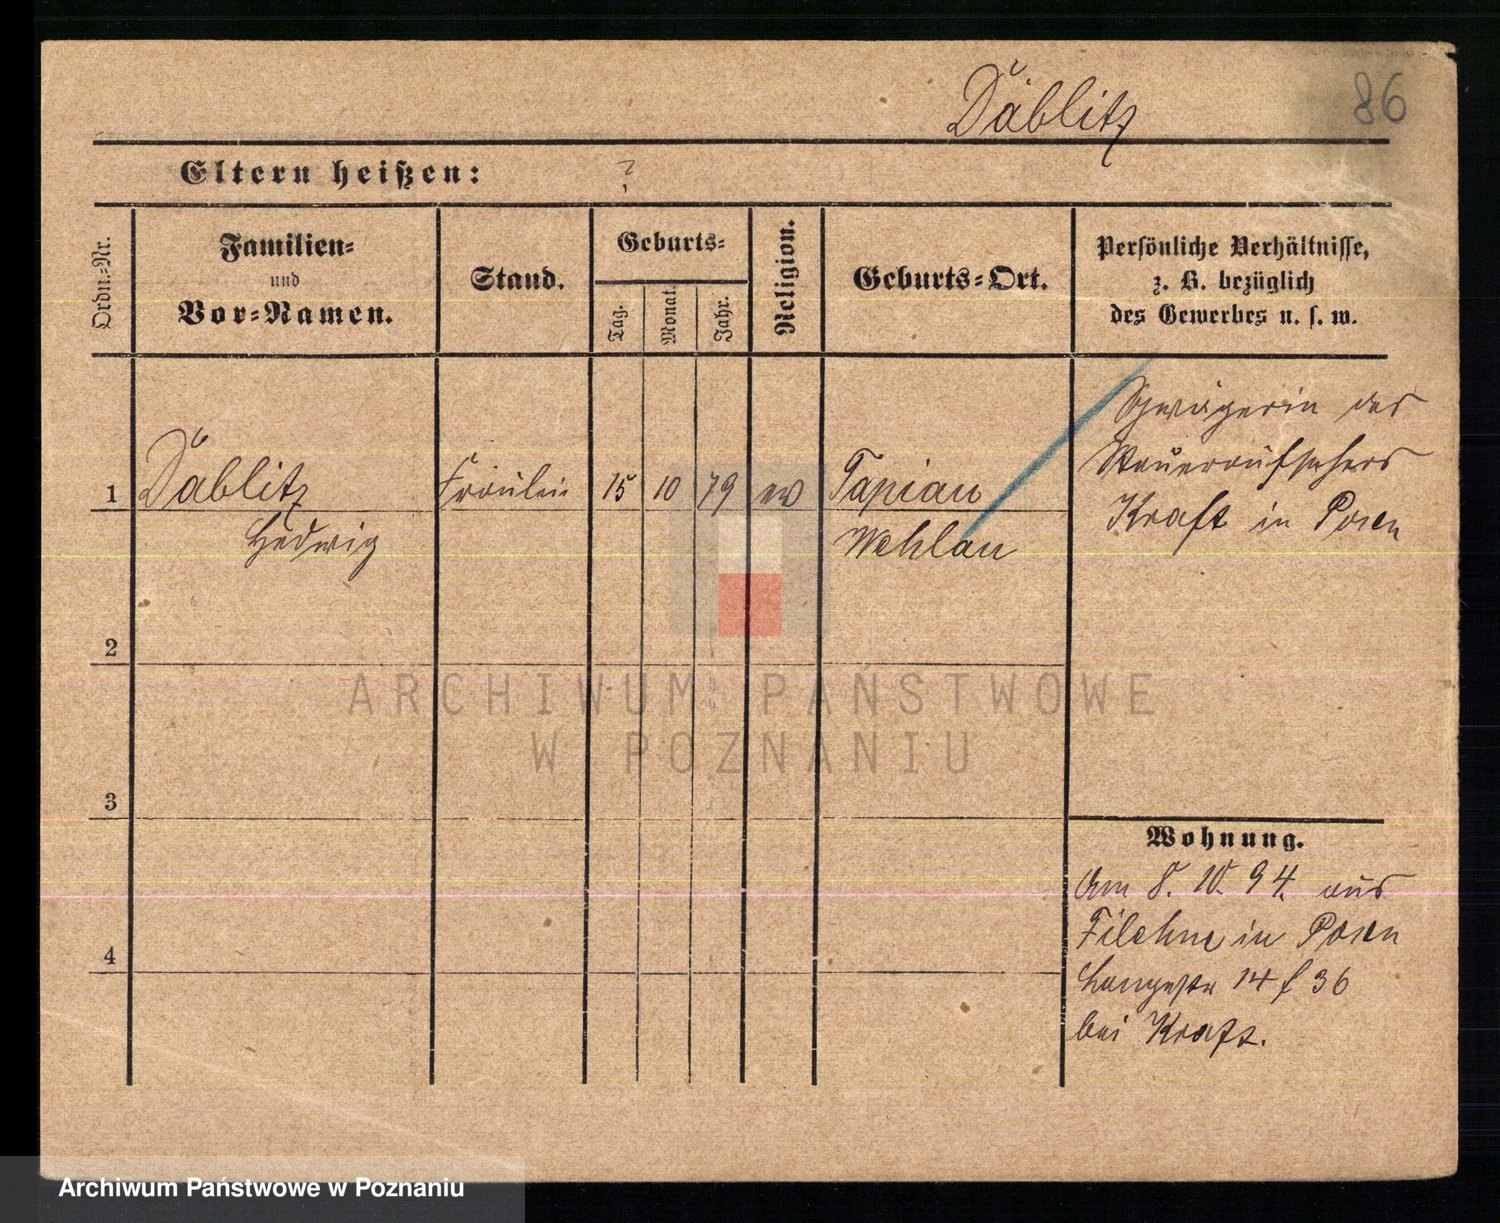 Däblitz
86
Eltern heißen: ?
Ordn.-Nr.
Familien-
und
Vor-Namen.
Stand.
Geburts-
Tag.
Monat.
Jahr.
Religion.
Geburts-Ort.
Persönliche Verhältnisse,
z. B. bezüglich
des Gewerbes u. s. w.
1 Däblitz Fräulein 15 10 79 ev Tapiau
Hedwig Wehlau
Schwägerin des
Steueraufsehers
Kraft in Posen
2
3
4
Wohnung.
Am 8. 10. 94. aus
Filehne in Posen
Langestr 14 f 36
bei Kraft.
ARCHIWUM PAŃSTWOWE
W POZNANIU
Archiwum Państwowe w Poznaniu